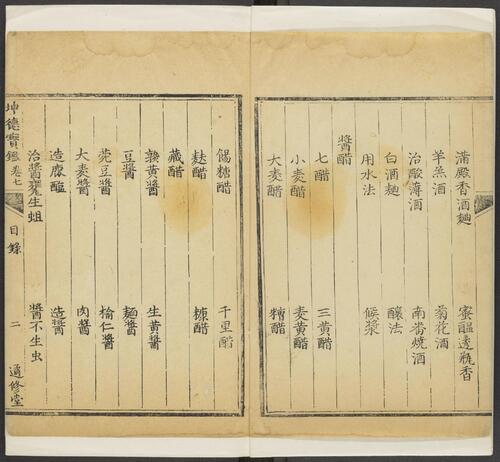 滿殿香酒麯 蜜醞透瓶香
羊羔酒 菊花酒
治酸薄酒 南畨燒酒
白酒麯 釀法
用水法 候漿
醬醋
七醋 三黄醋
小麥醋 麥黄醋
大麥醋 糟醋
餳糖醋 千里醋
麩醋 糠醋
藏醋
熟黄醬 生黄醬
豆醬 麵醬
豌豆醬 榆仁醬
大麥醬 肉醬
造鹿醢 造醬
治醬甕生蛆 醬不生虫
坤德寶鑑 卷七 目錄 二 適修堂